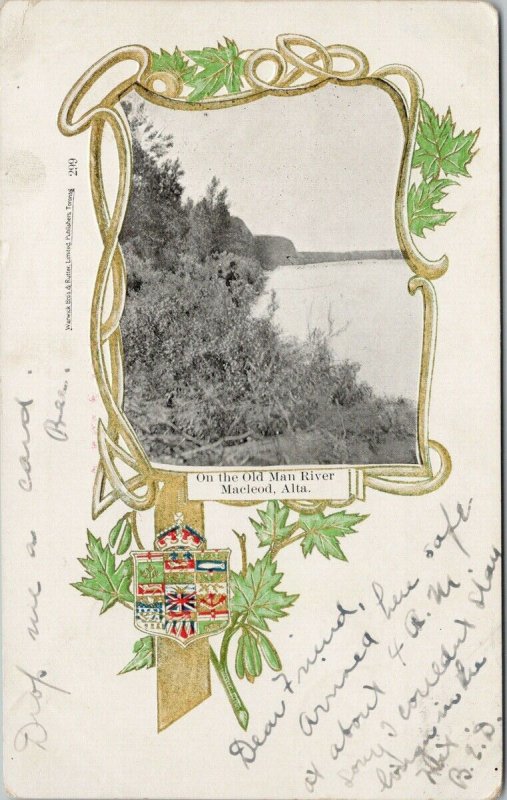 299
Warwick Bro's & Rutter, Limited, Publishers, Toronto
On the Old Man River
Macleod, Alta.
Dear Friend,
arrived here safe
at about 4 A.M.
I couldn't stay
in the
B.E.D.
Drop me a card.